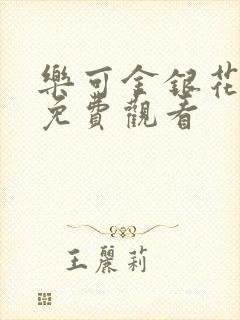 樂可金銀花
免費觀看
王麗莉